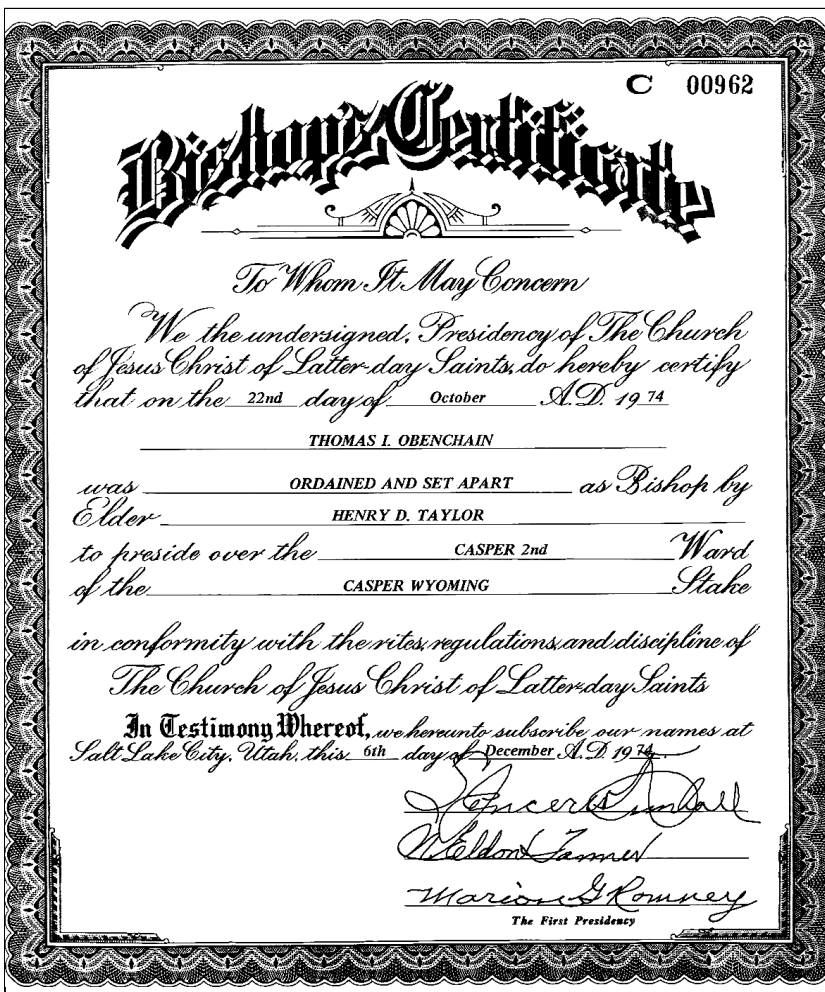 C 00962
Bishop's Certificate
To Whom It May Concern
We the undersigned, Presidency of The Church
of Jesus Christ of Latter-day Saints, do hereby certify
that on the 22nd day of October A.D. 19 74
THOMAS I. OBENCHAIN
was ORDAINED AND SET APART as Bishop by
Elder HENRY D. TAYLOR
to preside over the CASPER 2nd Ward
of the CASPER WYOMING Stake
in conformity with the rites, regulations, and discipline of
The Church of Jesus Christ of Latter-day Saints
In Testimony Whereof, we hereunto subscribe our names at
Salt Lake City, Utah, this 6th day of December A.D. 19 74.
Spencer W. Kimball
N Eldon Tanner
Marion G Romney
The First Presidency